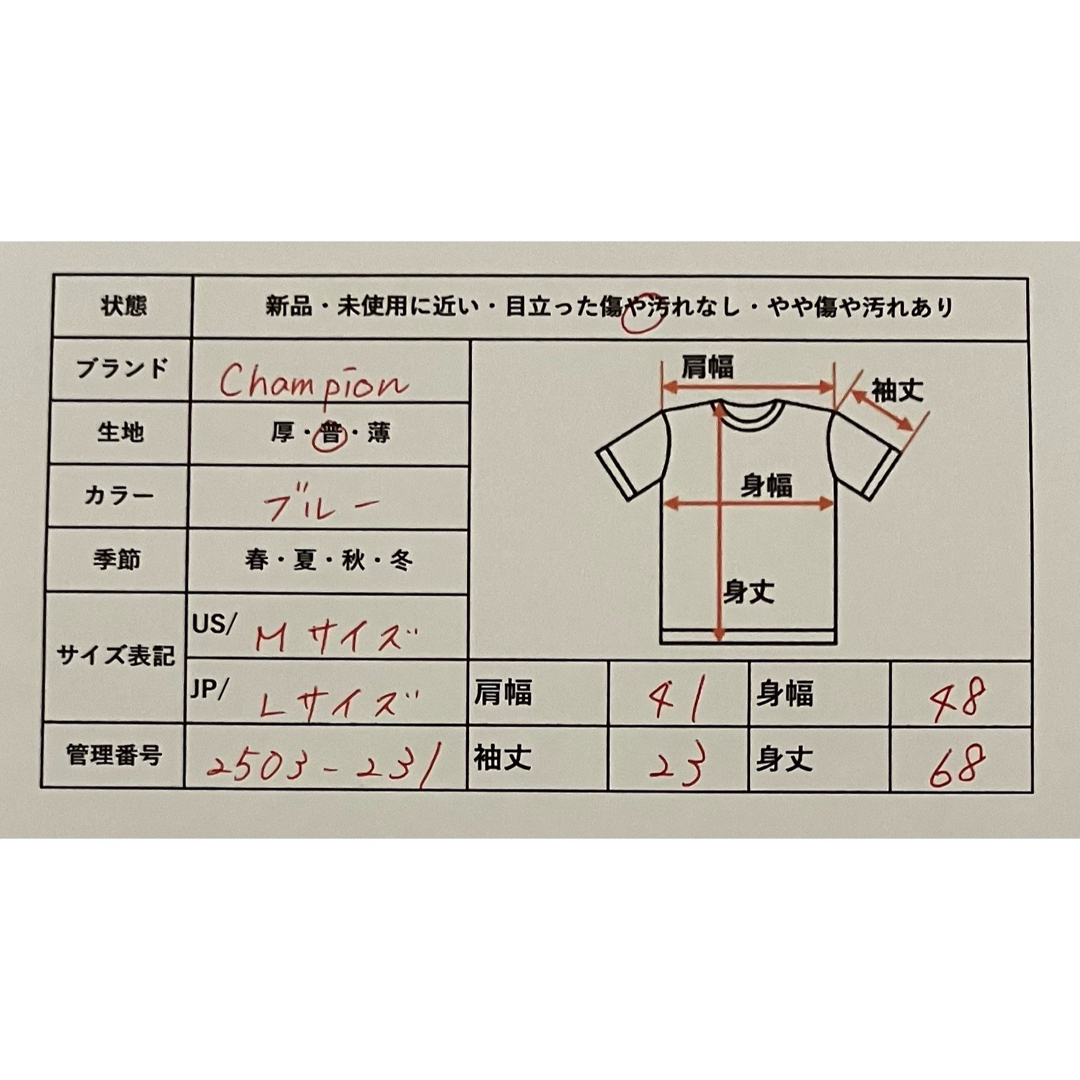 状態 新品・未使用に近い・目立った傷や汚れなし・やや傷や汚れあり
ブランド Champion
生地 厚・普・薄
カラー ブルー
季節 春・夏・秋・冬
サイズ表記 US/ Mサイズ
JP/ Lサイズ
管理番号 2503-231
肩幅
袖丈
身幅
身丈
肩幅 41 身幅 48
袖丈 23 身丈 68